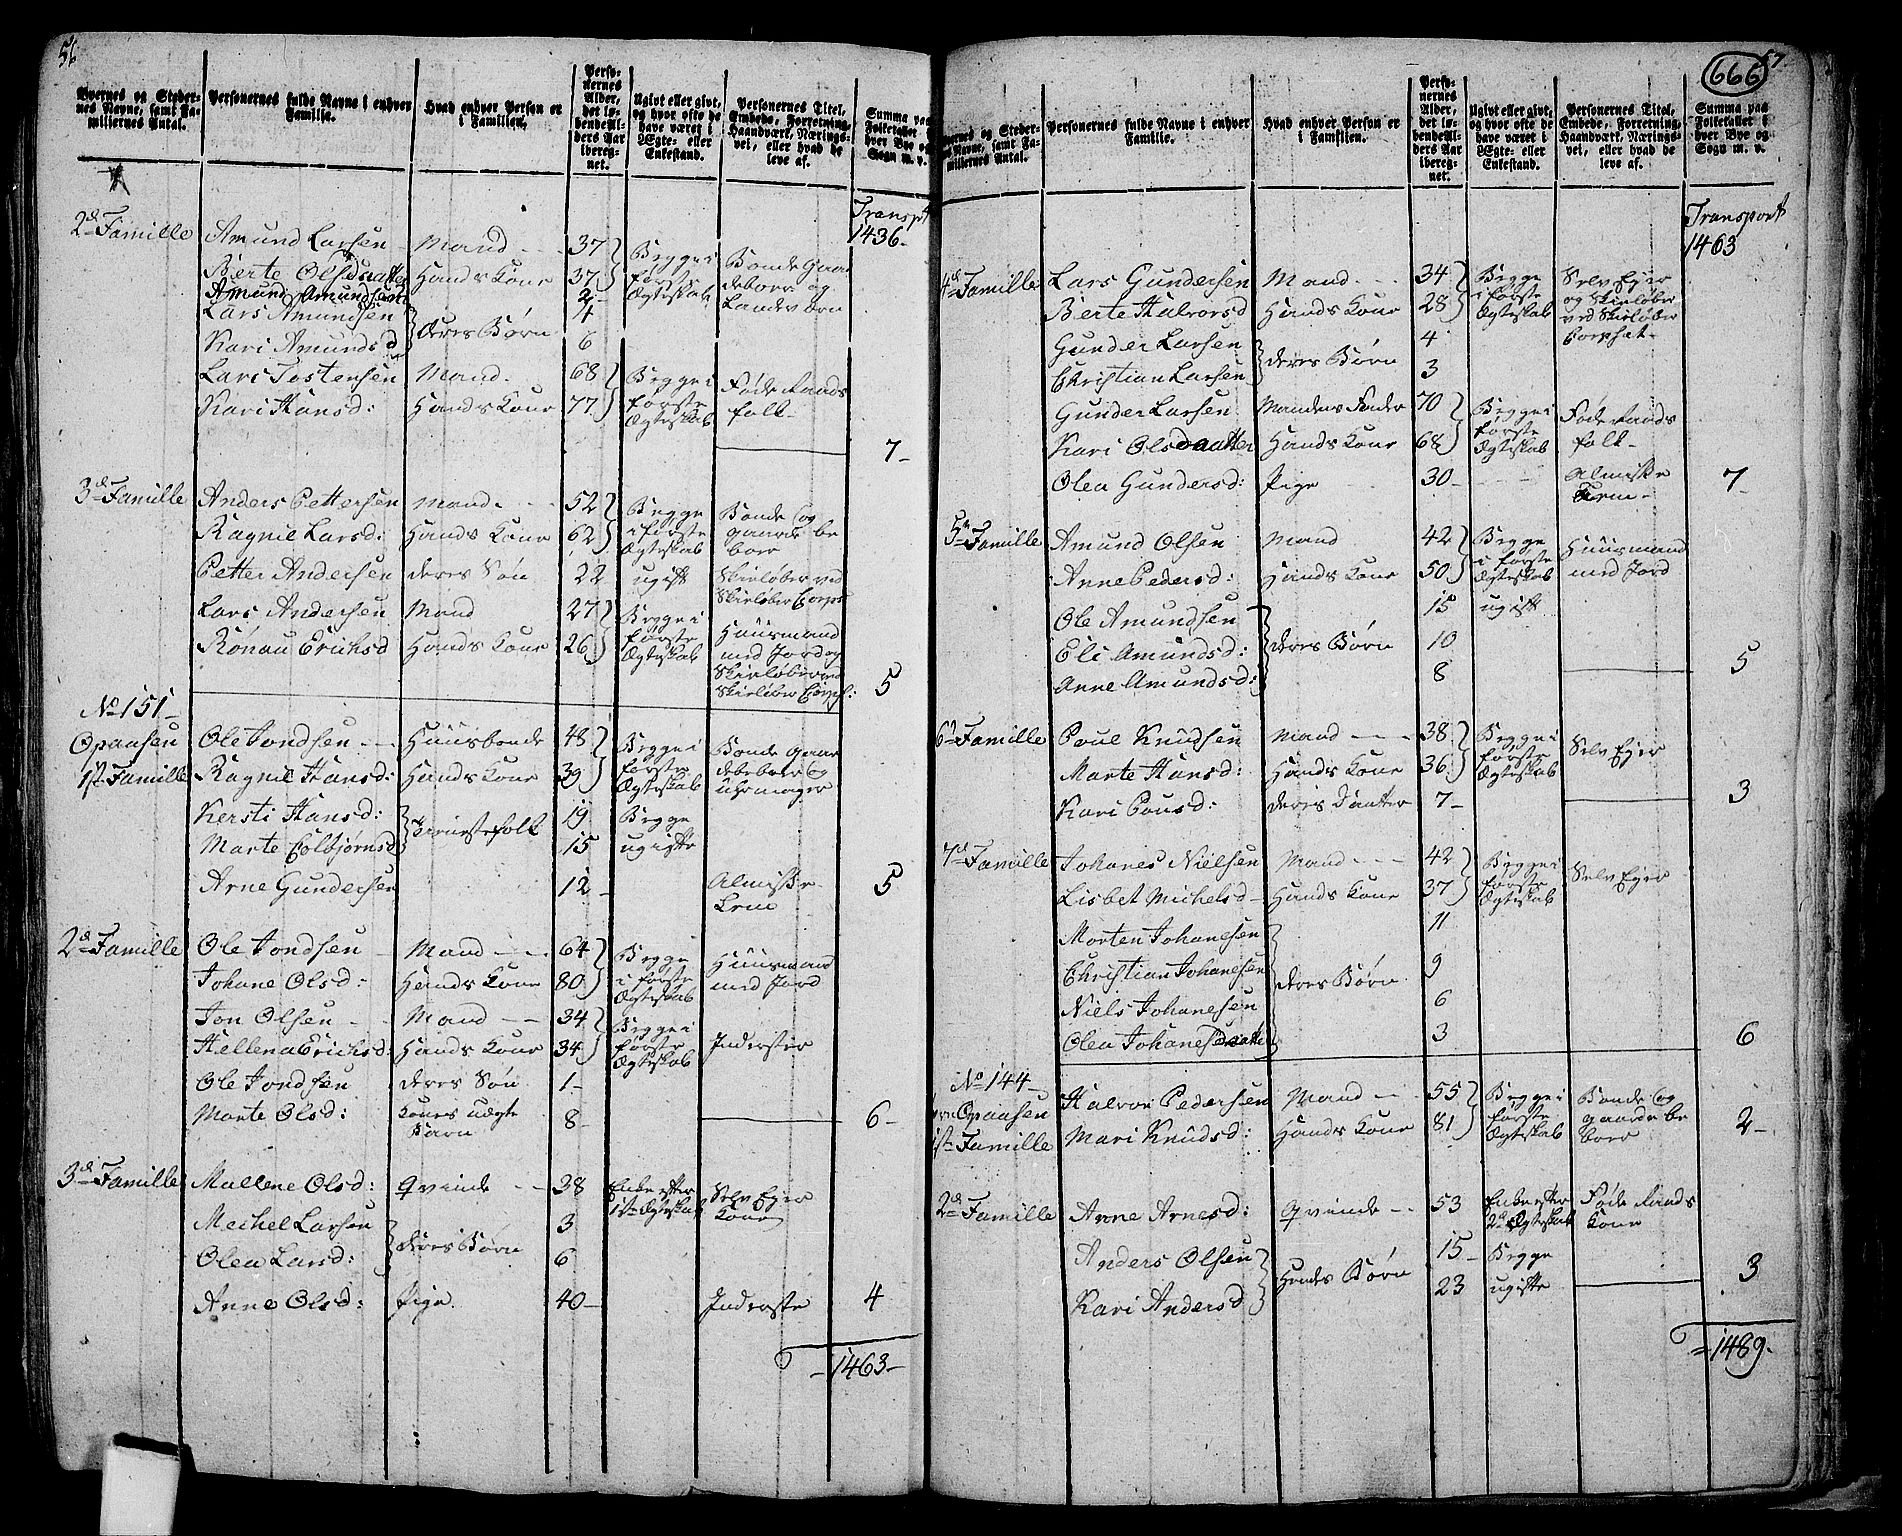 56
Byernes og Stedernes Navne, samt Familiernes Antal.
Personernes fulde Navne i enhver Familie.
Hvad enhver Person er i Familien.
Personernes Alder, det løbende Alders Aar iberegnet.
Ugivt eller givt, og hvor ofte de have været i Ægte- eller Enkestand.
Personernes Titel, Embede, Forretning, Haandværk, Næringsvei, eller hvad de leve af.
Summa paa Folketallet i hver Bye og Sogn m. v.
Transpt
1436-
2d Familie Amund Larsen Mand 37 Begge i første Ægteskab Bonde Gaardeboer og Landeværn
Berte Olsdaatter Hands Kone 37
Amund Amundsen 2
Lars Amundsen deres Børn 4
Kari Amundsd 6
Lars Tostensen Mand 68 Begge i første Ægteskab Føde Raads folk
Kari Hansd: Hands Kone 77
7-
3d Familie Anders Pettersen Mand 52 Begge i første Ægteskab Bonde og gaardbeboer
Ragnil Larsd: Hands Kone 62
Petter Andersen deres Søn 22 ugift Skieløber ved Skieløber Corps
Lars Andersen Mand 27 Begge i første Ægteskab Huusmand med Jord og Skieløber ved Skieløber Corps:
Rønau Erichsd Hands Kone 26
5
No 151-
Opaasen
1ste Familie Ole Jondsen Huusbonde 48 Begge i første Ægteskab Bonde gaardebeboer og uhrmager
Ragnil Hansd: Hands Kone 39
Kersti Hansd: Tienistefolk 19 Begge ugifte
Marte Colbjørnsd 15
Arne Gundersen 12 Almisse Lem 5
2d Familie Ole Jondsen Mand 64 Begge i første Ægteskab Huusmand med Jord
Johane Olsd: Hands Kone 80
Jon Olsen Mand 34 Begge i første Ægteskab Inderster
Hellena Erichsd: Hands Kone 34
Ole Jondsen deres Søn 1-
Marte Olsd: Konens uægte Barn 8- 6-
3d Familie Mallene Olsd: Qvinde 38 Enke efter 1ste Ægteskab Selv Eyer Kone
Mechel Larsen deres Børn 3
Olea Larsd: 6
Anne Olsd: Pige 40 Inderste 4
1463-
57
666
Byernes og Stedernes Navne, samt Familiernes Antal.
Personernes fulde Navne i enhver Familie.
Hvad enhver Person er i Familien.
Personernes Alder, det løbende Alders Aar iberegnet.
Ugivt eller givt, og hvor ofte de have været i Ægte- eller Enkestand.
Personernes Titel, Embede, Forretning, Haandværk, Næringsvei, eller hvad de leve af.
Summa paa Folketallet i hver Bye og Sogn m. v.
Transport
1463
4d Familie Lars Gundersen Mand 34 Begge i første Ægteskab Selv Eyer og Skieløber ved Skieløber Corpset
Berte Halvorsd Hands Kone 28
Gunder Larsen deres Børn 4
Christian Larsen 3
Gunder Larsen Mandens Fader 70 Begge i første Ægteskab Føde Raads folk
Kari Olsdaatter Hands Kone 68
Olea Gundersd: Pige 30 Almisse Lem 7
5te Familie Amund Olsen Mand 42 Begge i første Ægteskab Huusmand med Jord
Anne Pedersd: Hands Kone 50
Ole Amundsen deres Børn 15 ugift
Eli Amundsd: 10
Anne Amundsd: 8
5
6d Familie Poul Knudsen Mand 38 Begge i første Ægteskab Selv Eyer
Marte Hansd: Hands Kone 36
Kari Pousd: deres Daatter 7- 3
7d Familie Johanes Nielsen Mand 42 Begge i første Ægteskab Selv Eyer
Lisbet Michelsd Hands Kone 37
Morten Johanesen deres Børn 11
Christian Johanesen 9
Niels Johanesen 6
Olea Johanesdaatter 3 6
No 144-
Opaasen
1ste Familie Halvor Pedersen Mand 55 Begge i første Ægteskab Bonde og gaardebeboer
Mari Knudsd: Hands Kone 81 2-
2d Familie Anne Arnesd: Qvinde 53 Enke efter 2d Ægteskab Føde Raads Kone
Anders Olsen Hendes Børn 15 Begge ugifte
Kari Andersd 23 3
1489.